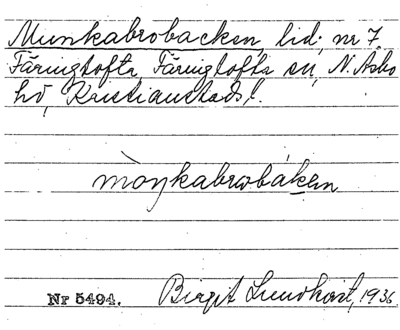 Munkabrobacken, lid; nr 7
Färingtofta, Färingtofta sn, N. Åsbo
hd, Kristianstads l.
mòŋkabrobákɛn
Nr 5494. Birgit Lundkvist, 1936